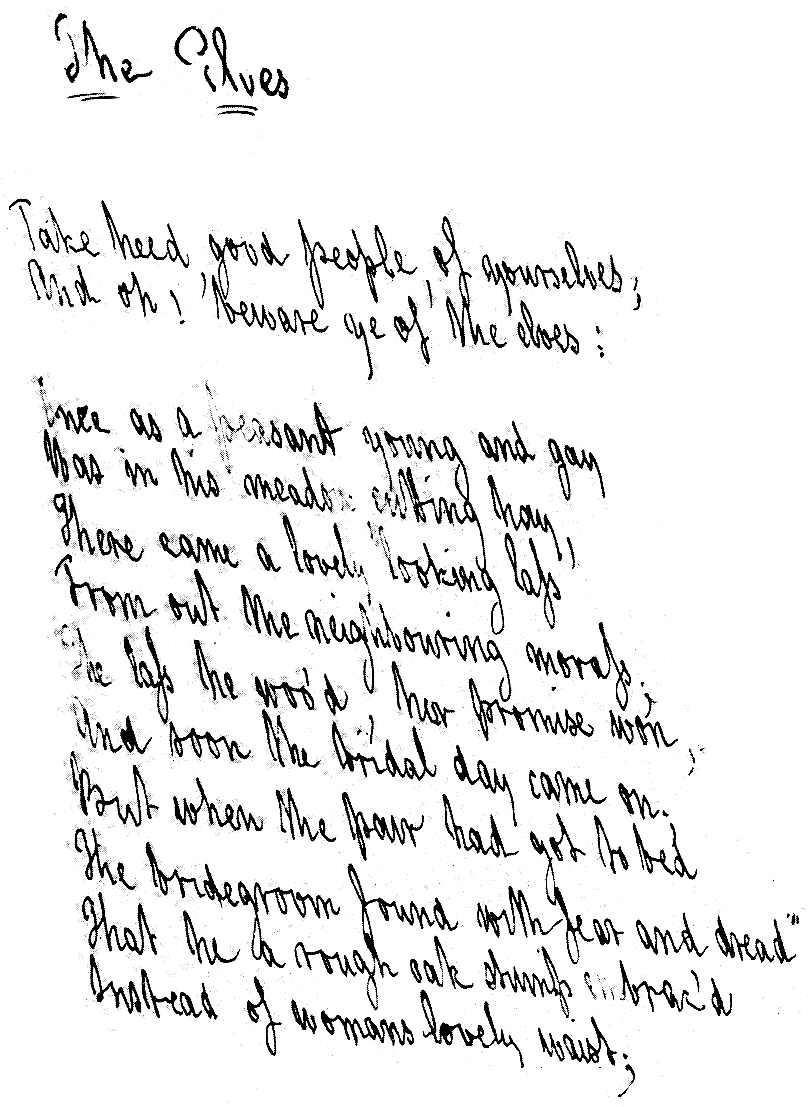 The Elves
Take heed good people, of yourselves;
And oh! beware ye of the elves:
Once as a peasant young and gay
Was in his meadow cutting hay,
There came a lovely looking lass
From out the neighbouring morass.
The lass he woo'd, her promise won,
And soon the bridal day came on.
But when the pair had got to bed
The bridegroom found with fear and dread
That he a rough oak stump embrac'd
Instead of womans lovely waist;